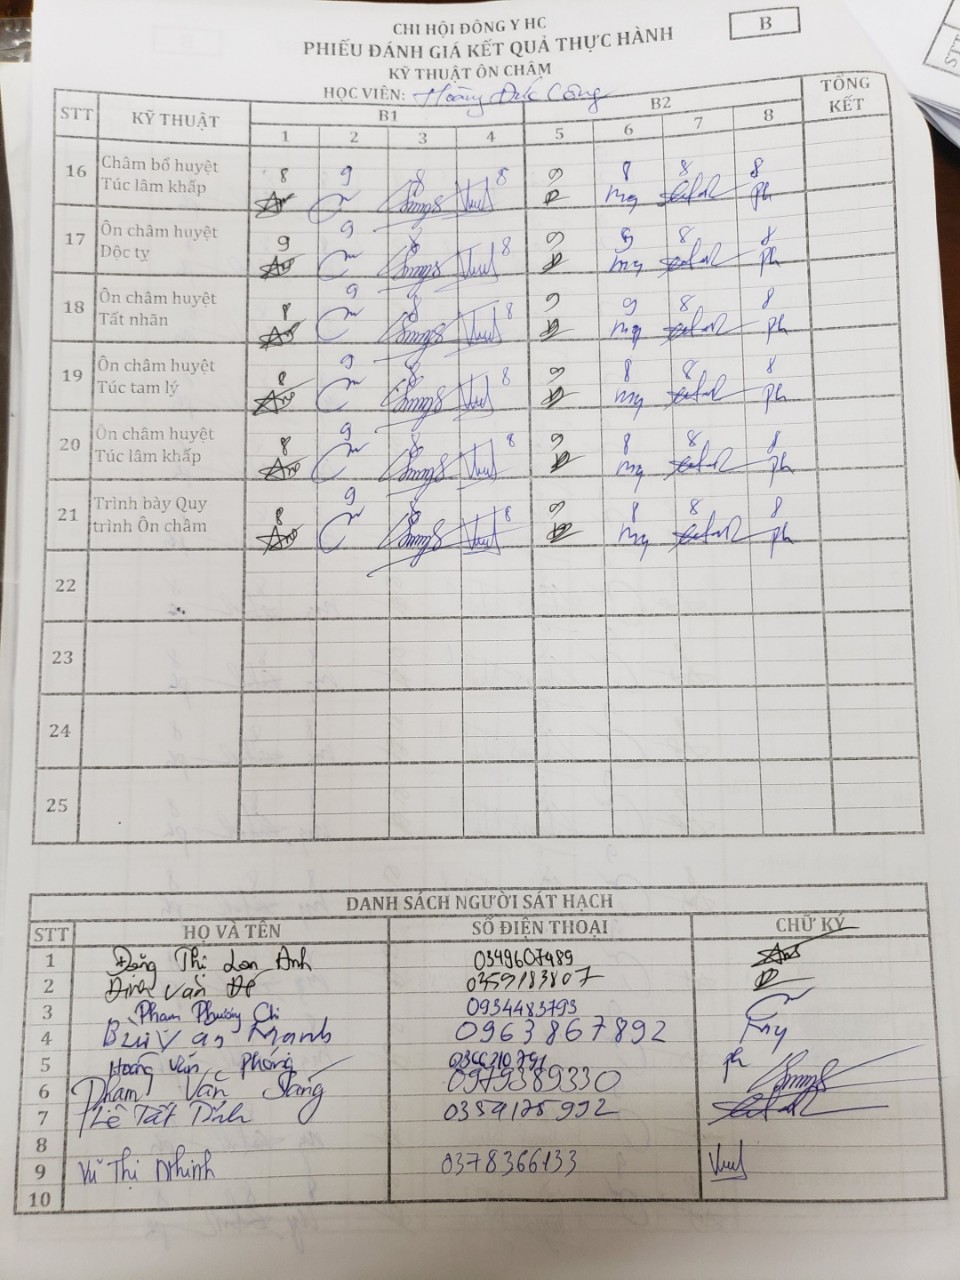 CHI HỘI ĐÔNG Y HC
B
PHIẾU ĐÁNH GIÁ KẾT QUẢ THỰC HÀNH
KỸ THUẬT ÔN CHÂM
HỌC VIÊN: Hoàng Đức Công
STT KỸ THUẬT B1 B2 TỔNG KẾT
1 2 3 4 5 6 7 8
16 Châm bổ huyệt Túc lâm khấp 8 9 8 8 9 8 8 8
17 Ôn châm huyệt Dộc tỵ 9 9 8 8 9 9 8 8
18 Ôn châm huyệt Tất nhãn 8 9 9 8 9 9 8 8
19 Ôn châm huyệt Túc tam lý 8 9 8 8 9 8 8 8
20 Ôn châm huyệt Túc lâm khấp 8 9 8 8 9 8 8 8
21 Trình bày Quy trình Ôn châm 8 9 8 8 9 8 8 8
22
23
24
25
DANH SÁCH NGƯỜI SÁT HẠCH
STT HỌ VÀ TÊN SỐ ĐIỆN THOẠI CHỮ KÝ
1 Đặng Thị Lan Anh 0349607489
2 Đinh Văn Đệ 0359183807
3 Phạm Phương Chi 0934483793
4 Bùi Văn Mạnh 0963867892 my
5 Hoàng Văn Phóng ph
6 Phạm Văn Sáng 0979389330
7 Lê Tất Dĩnh 0359175992
8
9 Vũ Thị Nhinh 0378366133
10